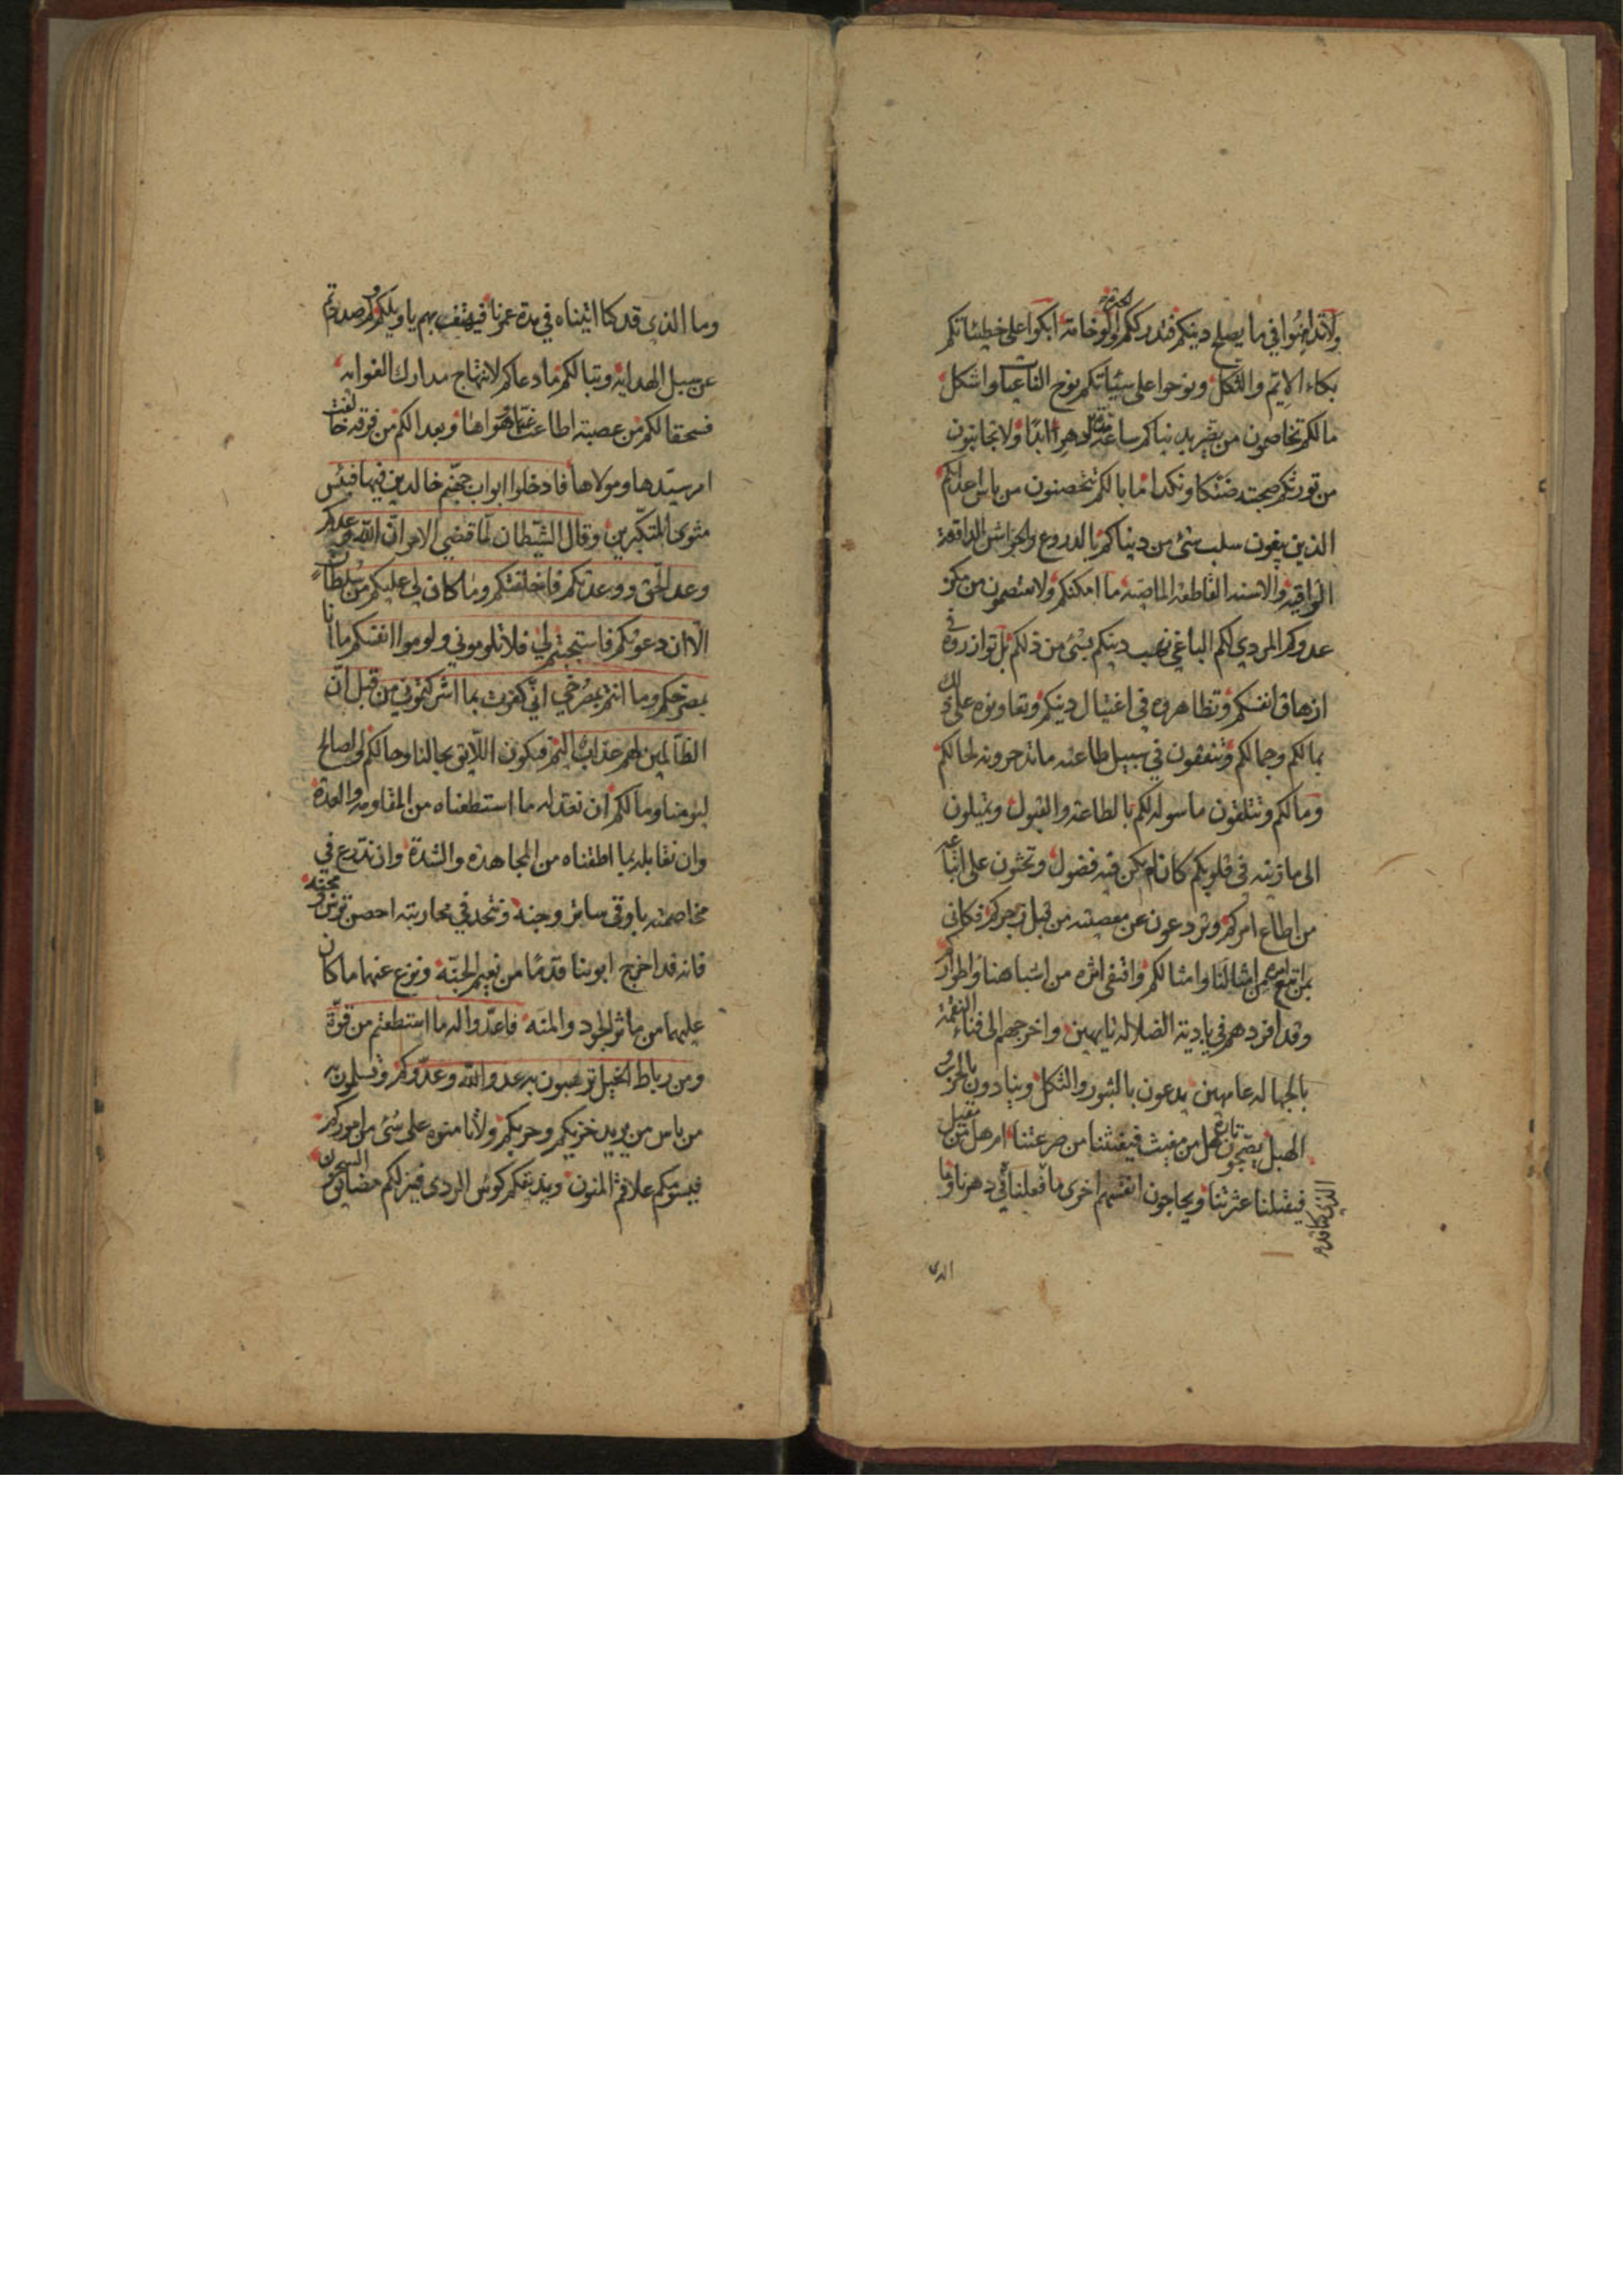 ولاتداهنوا في ما يصلح دينكم فتدرككم الوخامة ابكوا على خطيئاتكم
بكاء الايّم والثكل ونوحوا على سيّئاتكم نوح واشكل
مالكم تخاصمون من يضر بدنياكم ساعة ابدًا ولا تجانبون
من تورثكم صحبته ضنكا ونكدا ما بالكم تتحصنون من باس اعدائكم
الذين يبغون سلب شئ من دنياكم بالدروع
الواقية والاسنه القاطعة الماضية ما امكنكم ولا تعتصمون من مكر
عدوكم المردي لكم الباغي نهب دينكم بشئ من ذلكم بل توازروه في
ازهاق انفسكم وتظاهروه في اغتيال دينكم وتعاونوه على ذلك
بمالكم وجمالكم وتنفقون في سبيل طاعته ما تدخرونه لحالكم
ومآلكم وتتلقون ما سوله لكم بالطاعة والقبول وتميلون
الى ما زينه في قلوبكم كان لم يكن فيه فضول وتحثون على اتباعه
من اطاع امركم وتردعون عن معصيته من قبل زجركم فكاني
بمن اتبع امره من امثالنا وامثالكم واقتفى اثره من اشباهنا واطواركم
وقد افردهم في بادية الضلالة تايهين واخرجهم الى فناء النقمة
بالجهالة عامهين يدعون بالثبور والثكل وينادون بالحزن و
الهبل يضجون تارة هل من مغيث فيغيثنا من صرعتنا ام هل من مقيل
فيقيلنا عثرتنا ويحاجون انفسهم اخرى ما فعلنا في دهرنا وما
الذي
وما الذي قد كنا اتيناه في مدة عمرنا فيهتف بهم يا ويلكم لم صددتم
عن سبيل الهداية وتبا لكم ما دعاكم لانتهاج مدارك الغواية
فسحقا لكم من عصبة اطاعت هواها وبعدا لكم من فرقة خالفت
امر سيّدها ومولاها فادخلوا ابواب جهنّم خالدين فيها فبئس
مثوى المتكبّرين وقال الشّيطان لمّا قضي الامر انّ اللّه وعدكم
وعد الحقّ ووعدتكم فاخلفتكم وما كان لي عليكم من سلطان
الّا ان دعوتكم فاستجبتم لي فلا تلوموني ولوموا انفسكم ما انا
بمصرخكم وما انتم بمصرخيّ انّي كفرت بما اشركتموني من قبل انّ
الظّالمين لهم عذاب اليم فيكون اللّايق بحالنا وحالكم لصالح
ليومنا وما لكم ان نعدّ له ما استطعناه من المقاومة والعدة
وان نقابله بما اطقناه من المجاهدة والشدّة وان ندّرع في
مخاصمته باوقى ساتر وجنة ونتخذ في محاربته احصن ترس و مجنة
فانه قد اخرج ابوينا قدمًا من نعيم الجنّة ونزع عنهما ما كان
عليهما من ماثر الجود والمنّه فاعدّوا له ما استطعتم من قوّة
ومن رباط الخيل ترهبون به عدو اللّه وعدّوكم وتسلمون به
من باس من يريد خزيكم وحربكم ولا تامنوه على شئ من اموركم
فيسومكم علاقم المنون ويذيقكم كوس الردى فينزلكم مضايق السجون